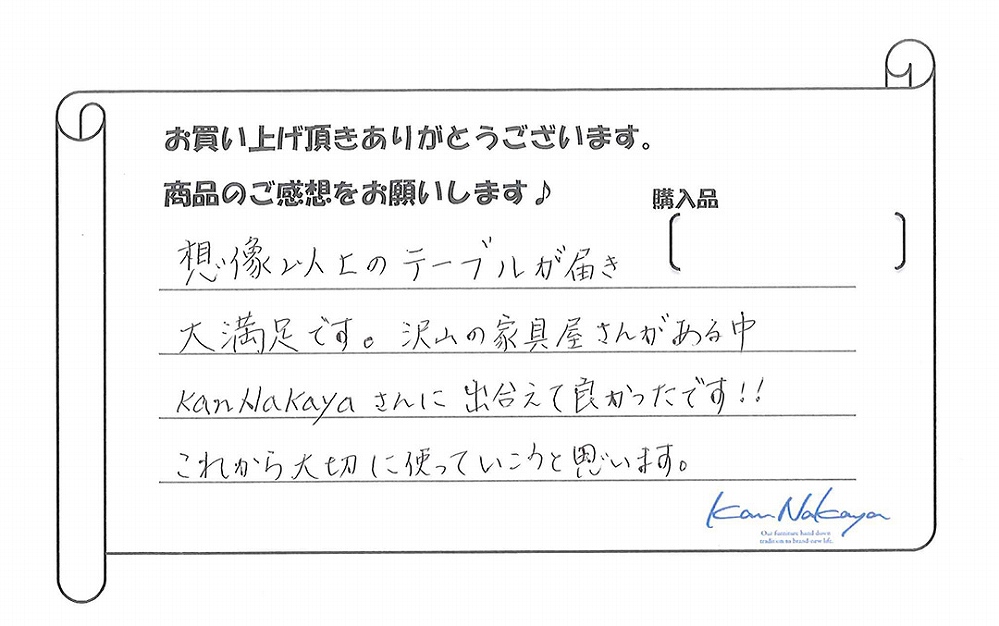 お買い上げ頂きありがとうございます。
商品のご感想をお願いします♪
購入品
想像以上のテーブルが届き
大満足です。沢山の家具屋さんがある中
KanNakayaさんに出合えて良かったです!!
これから大切に使っていこうと思います。
Kan Nakaya
Our furniture hand down
tradition to brand-new life.